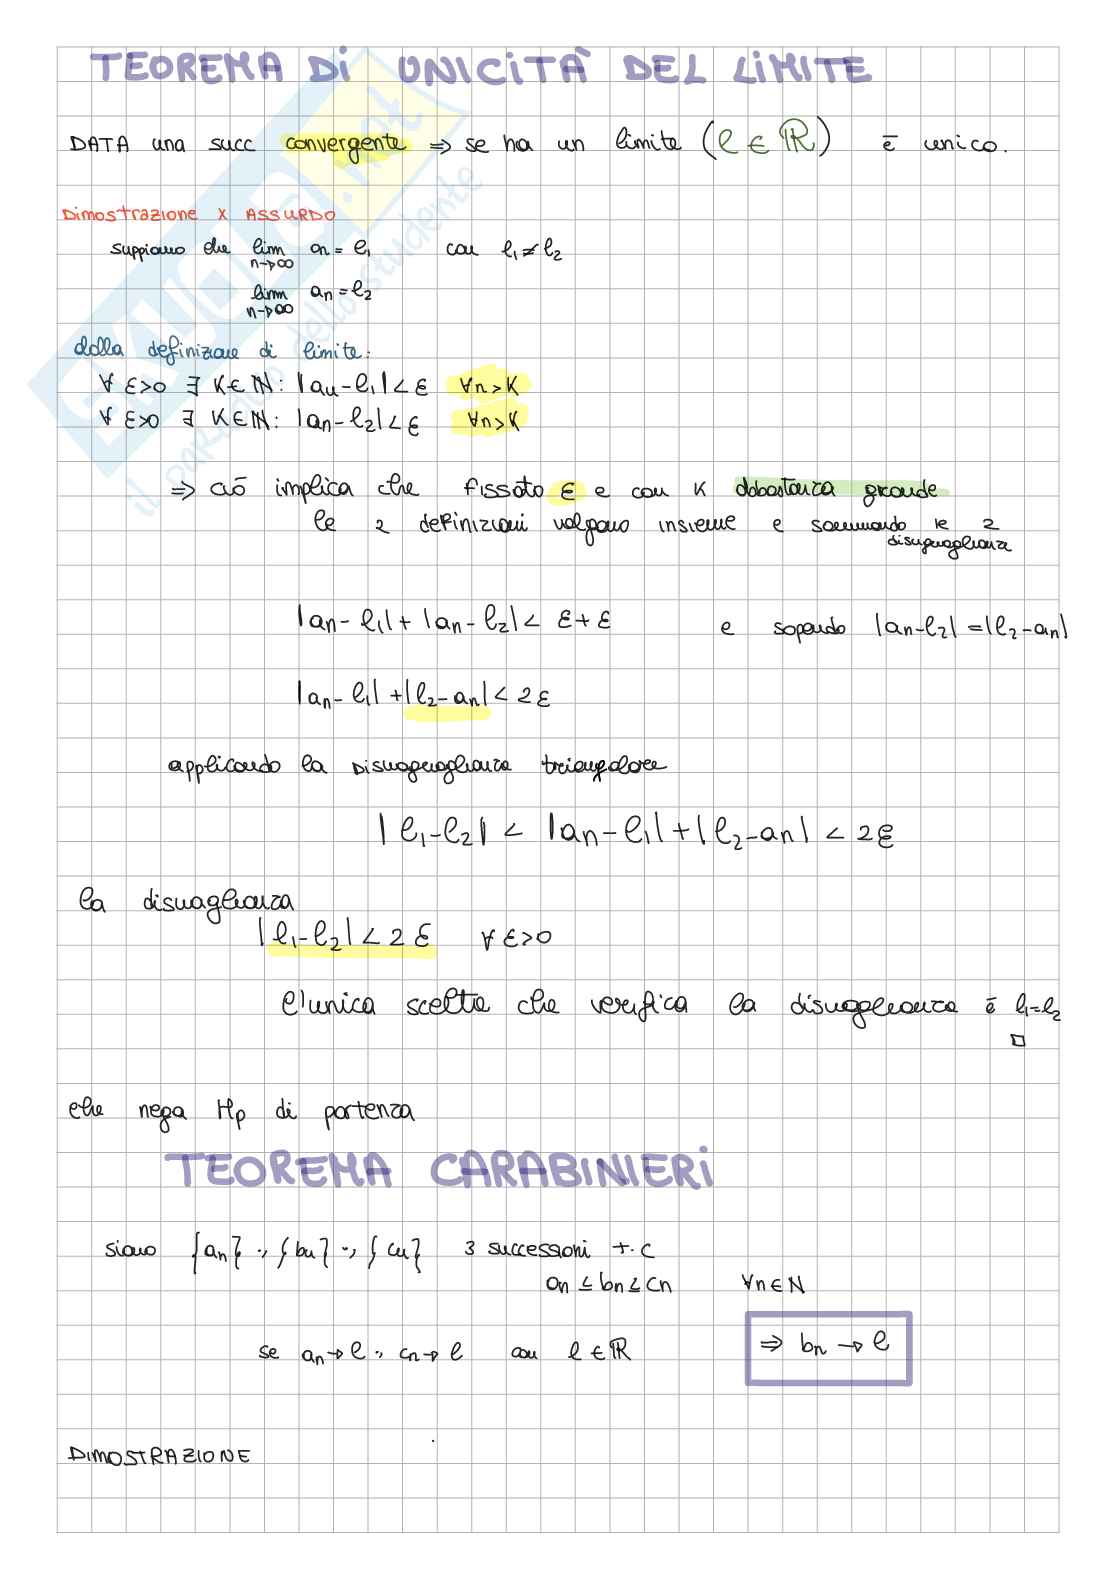 TEOREMA Di UNiCiTÀ DEL LiMiTE
DATA una succ convergente ⇒ se ha un limite (ℓ ∈ ℝ) è unico.
Dimostrazione x ASSURDO
suppiamo che lim n→∞ an = ℓ1 con ℓ1 ≠ ℓ2
lim n→∞ an = ℓ2
dalla definizione di limite:
∀ ε>0 ∃ K∈ℕ: |an-ℓ1| < ε ∀n>K
∀ ε>0 ∃ K∈ℕ: |an-ℓ2| < ε ∀n>K
⇒ ciò implica che fissato ε e con K abbastanza grande
le 2 definizioni valgono insieme e sommando le 2
disuguaglianze
|an-ℓ1| + |an-ℓ2| < ε+ε e sapendo |an-ℓ2| = |ℓ2-an|
|an-ℓ1| + |ℓ2-an| < 2ε
applicando la Disuguaglianza triangolare
|ℓ1-ℓ2| < |an-ℓ1| + |ℓ2-an| < 2ε
la disuaglianza
|ℓ1-ℓ2| < 2ε ∀ ε>0
l'unica scelta che verifica la disuaglianza è ℓ1=ℓ2
□
che nega Hp di partenza
TEOREMA CARABINIERi
siano {an} ., {bn} ., {cn} 3 successioni t.c
an ≤ bn ≤ cn ∀n∈N
se an→ℓ ., cn→ℓ con ℓ∈ℝ ⇒ bn → ℓ
DIMOSTRAZIONE
il paradiso dello studente